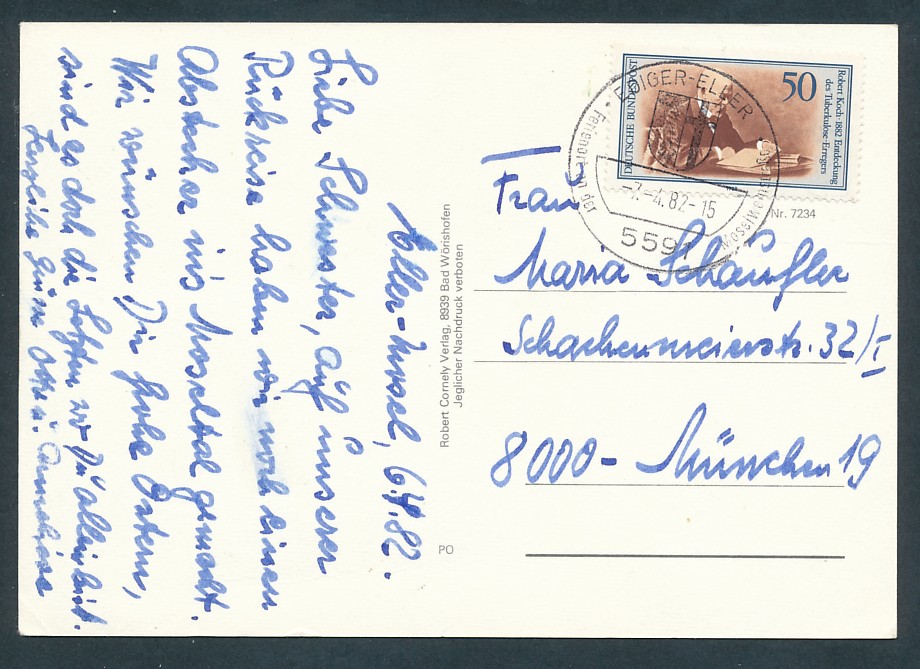 Eller-Mosel, 6.4.82.
Liebe Schwester, auf unserer
Rückreise haben wir noch einen
Abstecher ins Moseltal gemacht.
Wir wünschen Dir frohe Ostern,
sind es doch die letzten wo Du allein bist.
Herzliche Grüße Otto u. Anneliese
Robert Cornely Verlag, 8939 Bad Wörishofen
Jeglicher Nachdruck verboten
PO
DEUTSCHE BUNDESPOST
50
Robert Koch 1882 Entdeckung
des Tuberkulose-Erregers
EDIGER-ELLER
-7.-4.82-15
5591
Nr. 7234
Frau
Maria Schäufler
Schachenmeierstr. 32/I
8000 - München 19